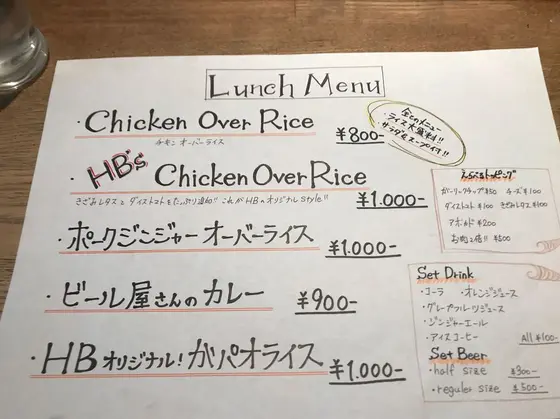 Lunch Menu
・Chicken Over Rice ¥800-
チキン オーバーライス
全てのメニュー
ライス大盛無料!!
サラダ&スープ付!!
・HB's Chicken Over Rice ¥1.000-
きざみレタスとダイストマトをたっぷり追加!! これがHBのオリジナルstyle!!
・ポークジンジャー オーバーライス ¥1.000-
・ビール屋さんのカレー ¥900-
・HBオリジナル!ガパオライス ¥1.000-
えらべるトッピング
ガーリックチップ¥50 チーズ¥100
ダイストマト¥100 きざみレタス¥100
アボカド¥200
お肉2倍!! ¥500
Set Drink
・コーラ ・オレンジジュース
・グレープフルーツジュース
・ジンジャーエール
・アイスコーヒー All ¥100-
Set Beer
・half size ¥300-
・regular size ¥500-